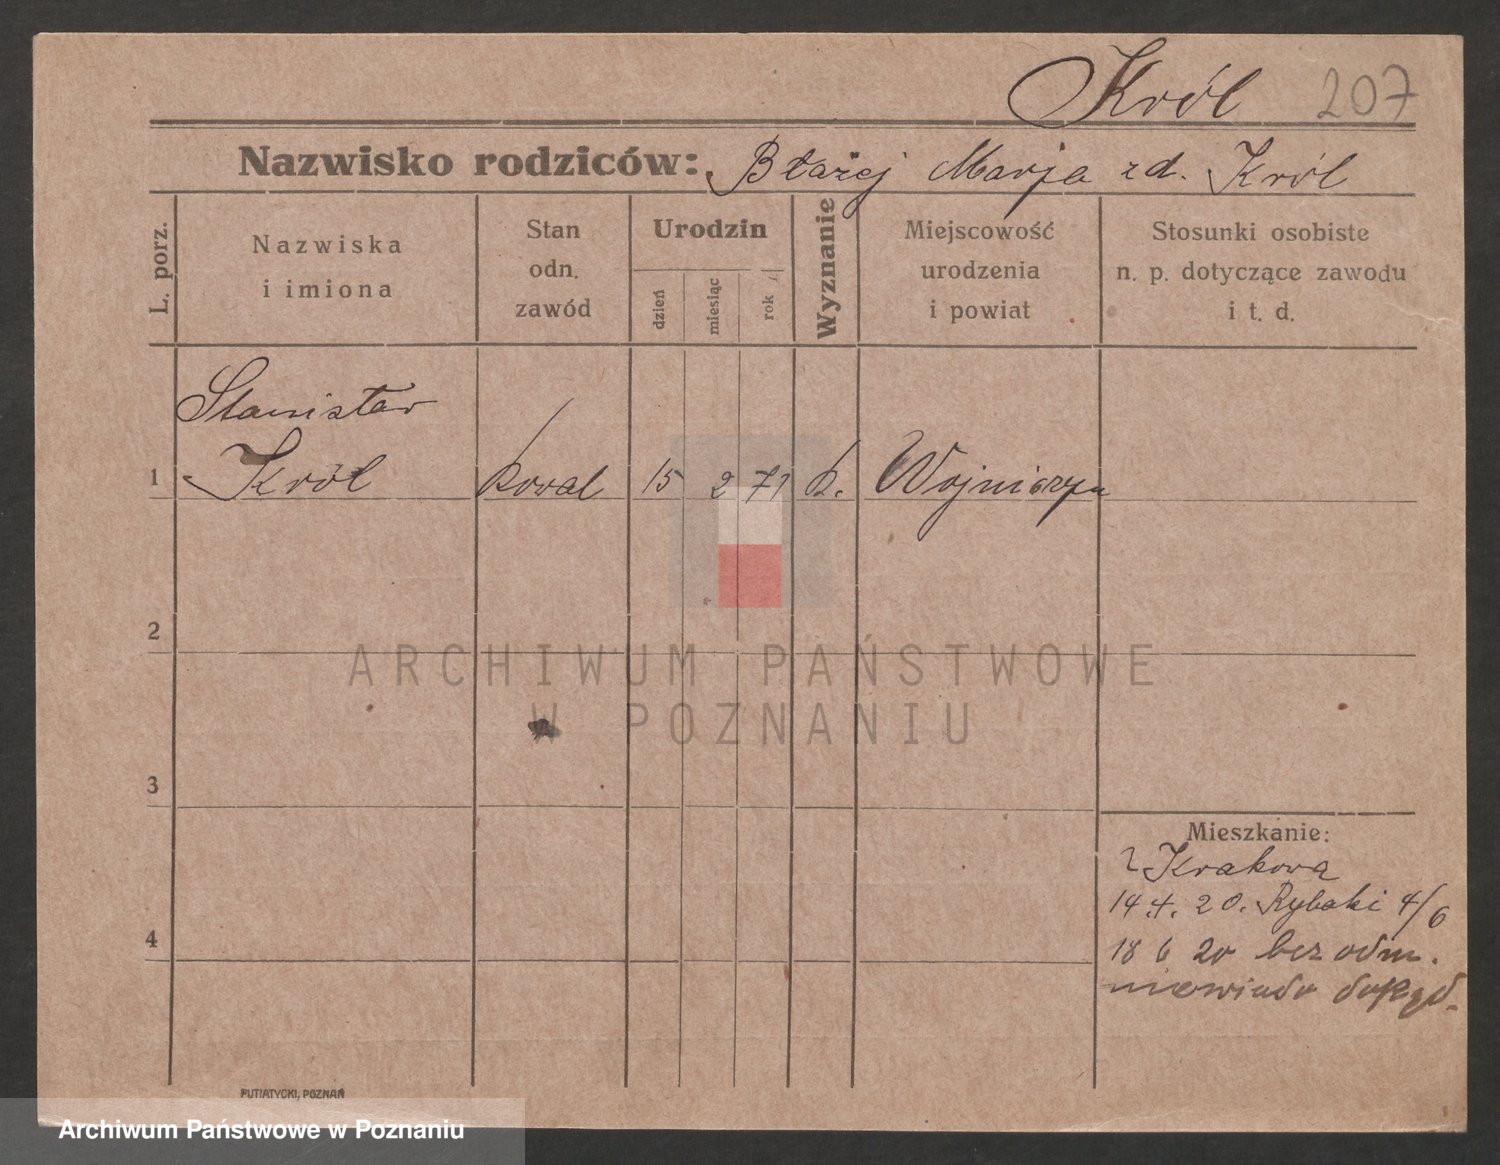 Król 207
Nazwisko rodziców: Błażej Marja zd. Król
L. porz.
Nazwiska
i imiona
Stan
odn.
zawód
Urodzin
dzień
miesiąc
rok
Wyznanie
Miejscowość
urodzenia
i powiat
Stosunki osobiste
n. p. dotyczące zawodu
i t. d.
Stanisław
1 Król kowal 15 2 71 k.
2
3
4
Mieszkanie:
z Krakowa
14.4.20. Rybaki 4/6
18 6 20 bez odm.
niewiado dokąd.
PUTIATYCKI, POZNAŃ
ARCHIWUM PAŃSTWOWE
W POZNANIU
Archiwum Państwowe w Poznaniu